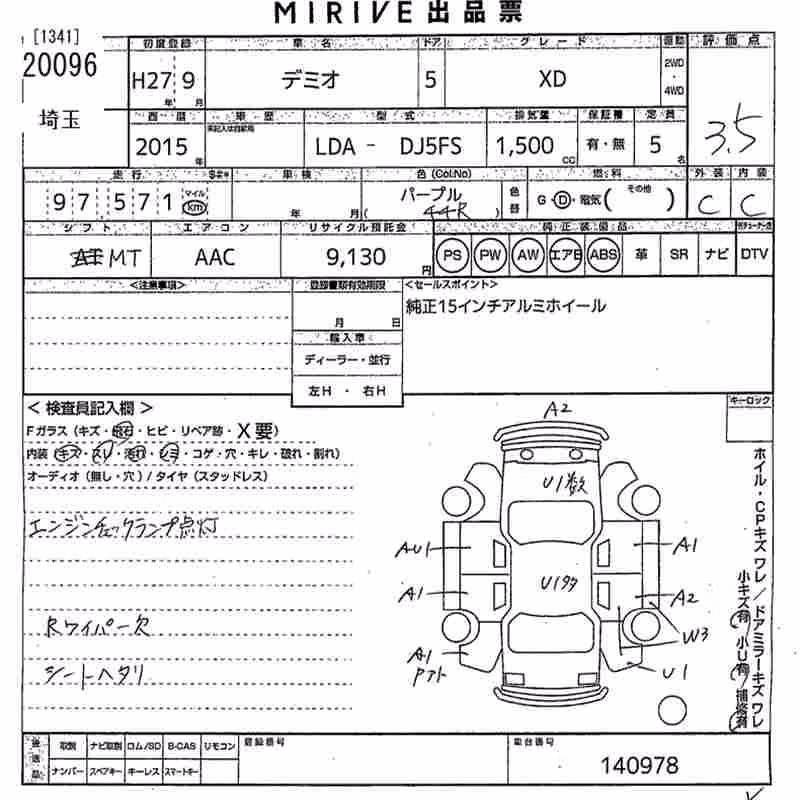 MIRIVE出品票
[1341]
20096
埼玉
初度登録 車名 ドア グレード 駆動 評価点
H27 9 年 月 デミオ 5 XD 2WD・4WD
3.5
西暦 車歴 型式 排気量 保証書 定員
2015 年 未記入は自家用 LDA - DJ5FS 1,500 CC 有・無 5 名
走行 車検 色(Col.No) 燃料 外装 内装
97,571 マイル km 年 月 パープル ( 44R ) 色替 G・D・電気( その他 ) C C
シフト エアコン リサイクル預託金 純正装備品
MT AAC 9,130 円 PS PW AW エアB ABS 革 SR ナビ DTV
<注意事項> 登録書類有効期限 <セールスポイント>
月 日 純正15インチアルミホイール
輸入車
ディーラー・並行
左H ・ 右H
<検査員記入欄> キーロック
Fガラス(キズ・飛石・ヒビ・リペア跡・X要)
内装(キズ・スレ・汚れ・シミ・コゲ・穴・キレ・破れ・割れ)
オーディオ(無し・穴)/タイヤ(スタッドレス)
エンジンチェックランプ点灯
Rワイパー欠
シートヘタリ
A2
U1数
AU1 A1
U1多
A1 A2
W3
A1
Pアト
U1
ホイル・CPキズ ワレ/ドアミラーキズ ワレ
小キズ有 小U有 補修有
後送品 取説 ナビ取説 ロム/SD B-CAS リモコン 登録番号 車台番号
ナンバー スペアキー キーレス スマートキー 140978